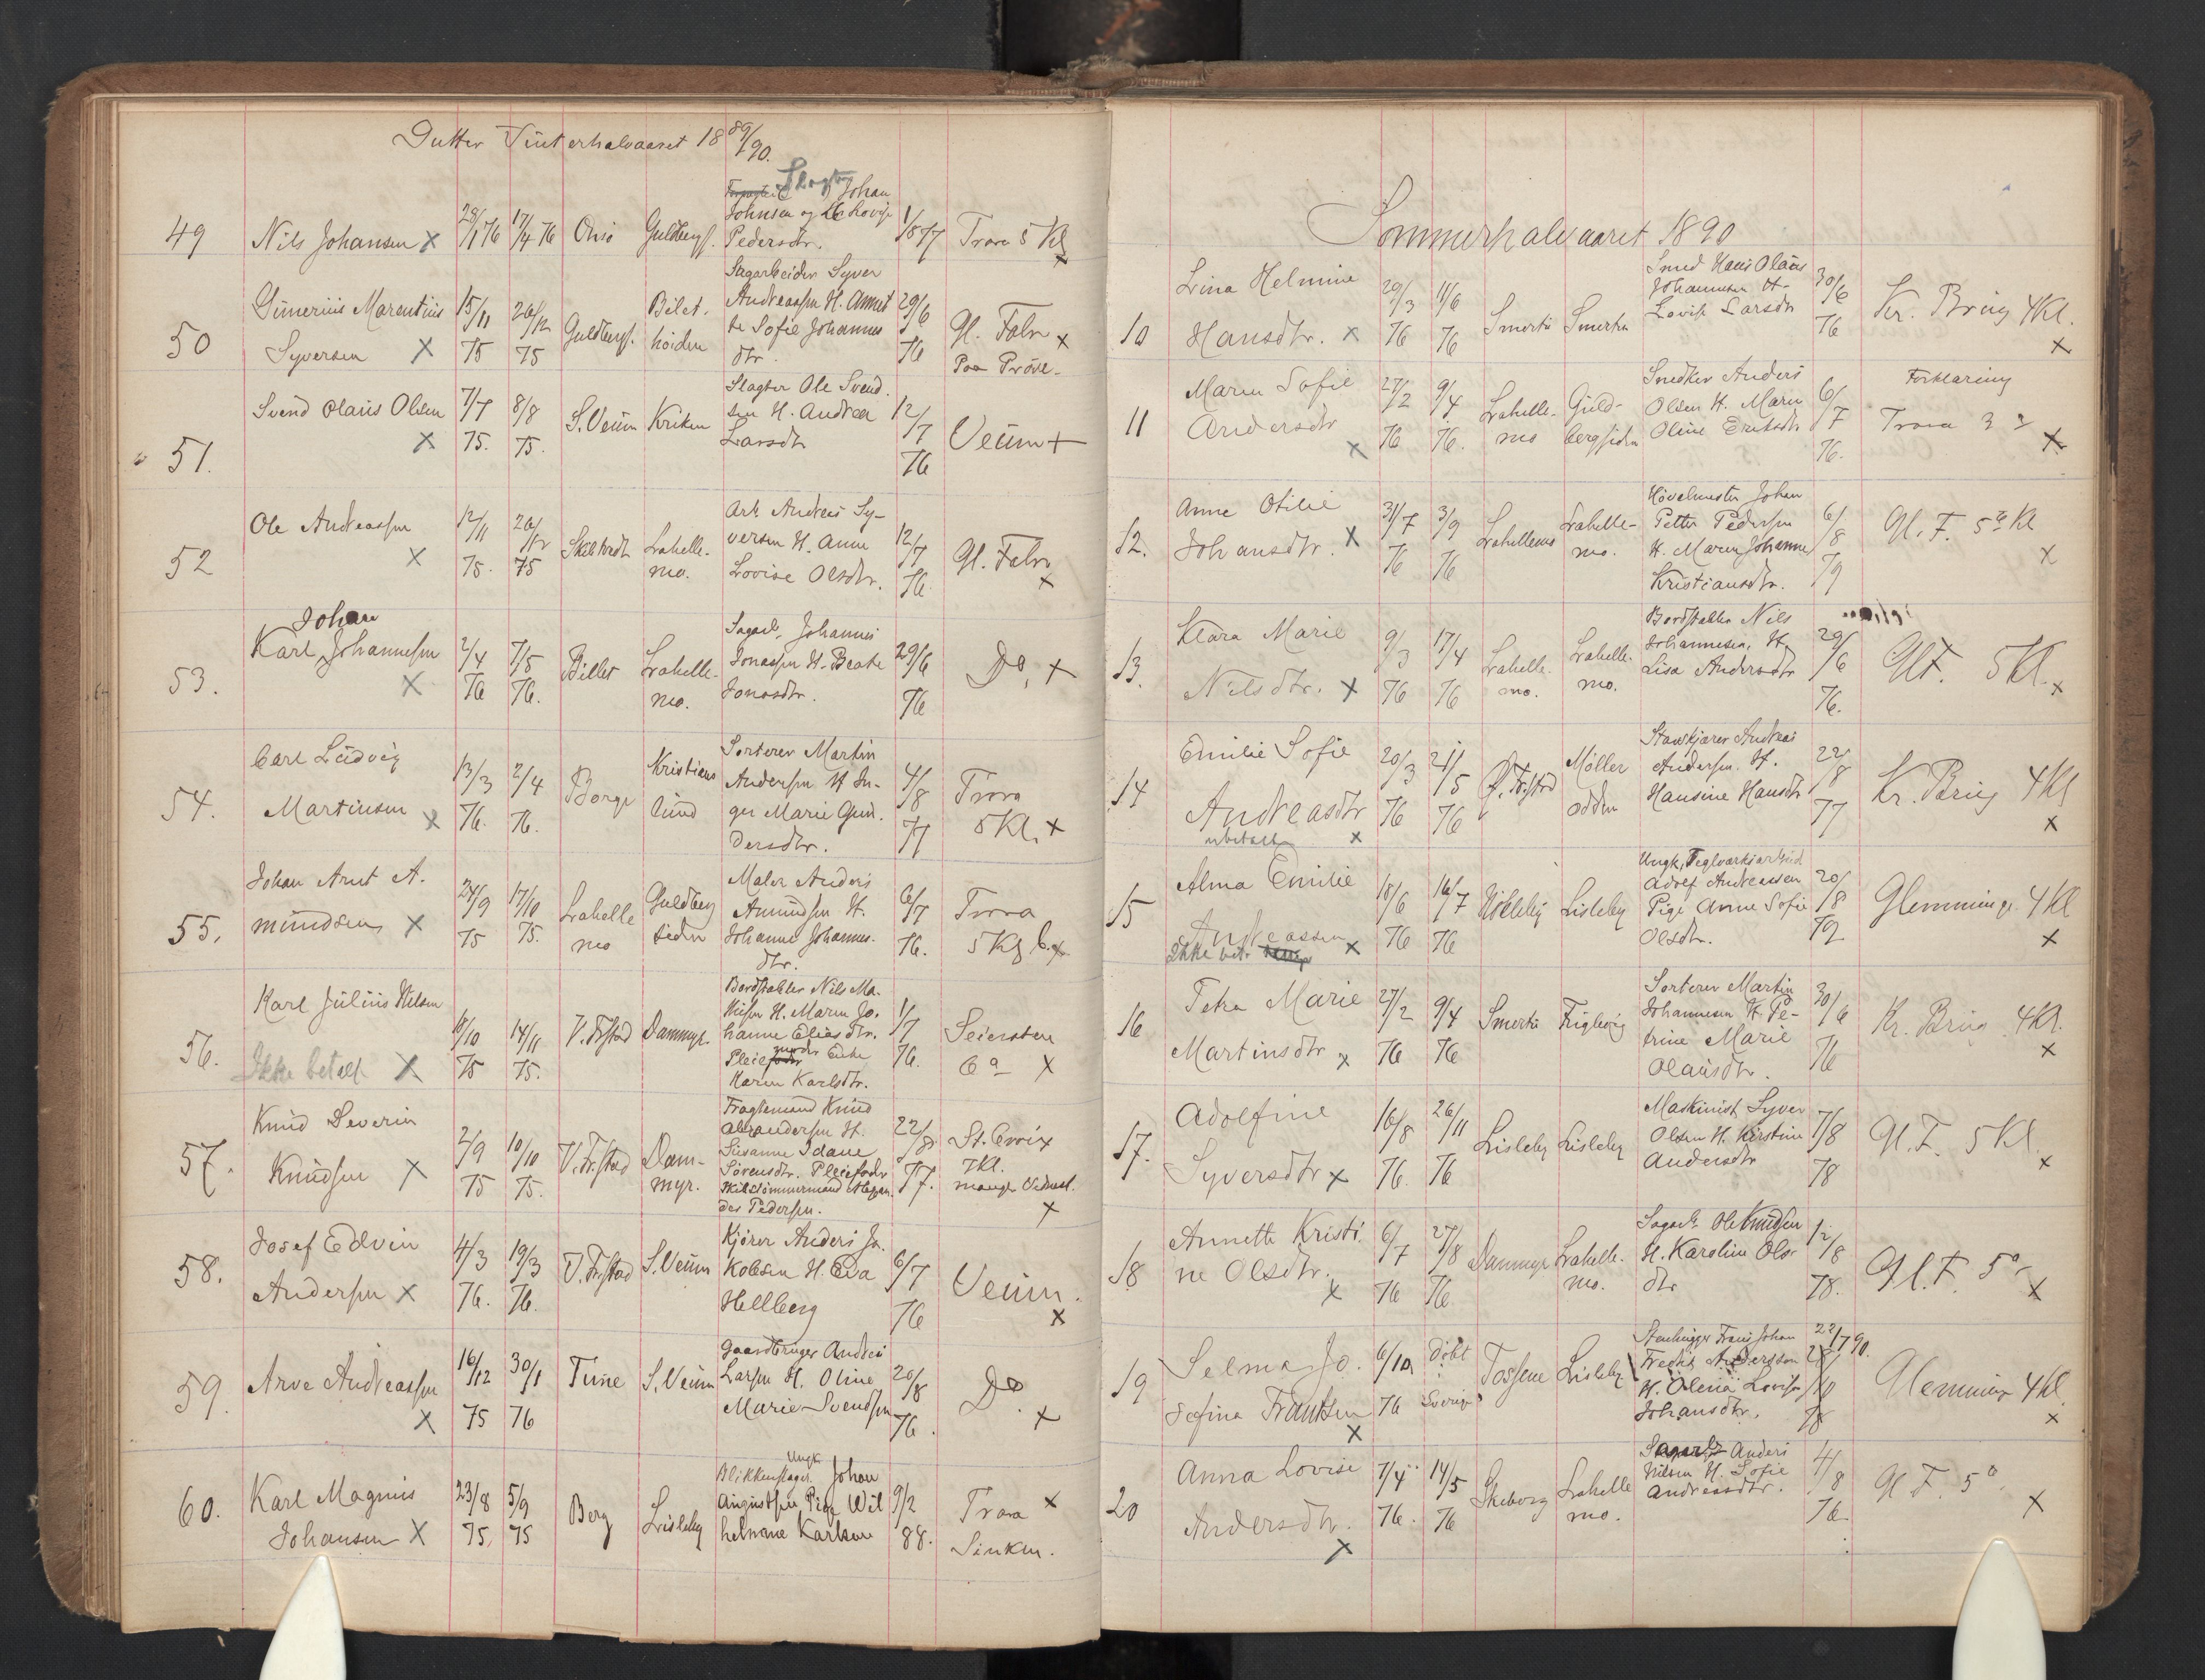 Gutter Vinterhalvaaret 18 89/90.
49 Nils Johansen x 28/1 76 17/4 76 Onsö Guldbergs. Slagter Johan
Johnsen og H. Lovise
Pedersdtr. 1/8 77 Trara 5 Kl x
50 Gunerius Marentius
Syversen x 15/11 75 26/12 75 Guldbergs. Bilet.
höiden Sagarbeider Syver
Andreassen H. Annet
te Sofie Johannes
dtr. 29/6 76 Gl. Fabr x
Paa Pröve.
51. Svend Olaus Olsen
x 7/7 75. 8/8 75. S. Veum Kriken Slagter Ole Svend.
sen H. Andrea
Larsdtr 12/7 76 Veum +
52 Ole Andreassen
x 12/11 75. 26/12 75 Skibtvedt Labelle-
mo. Arb. Andreas Sy-
versen H. Anne
Lovise Olsdtr. 12/7 76. Gl. Fabr.
x
53. Johan
Karl Johannesen
x 2/4 76 7/5 76. Billet Labelle-
mo. Sagarb. Johannes
Jonassen H. Beate
Jonasdtr. 29/6 76 Do, x
54. Carl Ludvig
Martinsen x 13/3 76. 2/4 76. Borge Kristians
lund Sorterer Martin
Andersen H In-
ger Marie Gun.
dersdtr. 4/8 77 Trara
5 Kl. x
55. Johan Arnt A.
mundsen x 24/9 75 17/10 75. Labelle
mo Guldberg
siden Maler Anders
Amundsen H.
Johanne Johannes.
dtr. 6/7 76. Trara
5 Kl b. x
56. Karl Julius Nilsen
Ikke betalt x 10/10 75 14/11 75. V. Frstad Dammyr. Bordstabler Nils Ma-
thisen H. Maren Jo.
hanne Eliasdtr.
Pleiemoder Enke
Karen Karlsdtr. 1/7 76. Seiersten
6 a x
57. Knud Severin
Knudsen x 2/9 75 10/10 75. V. Fr.stad Dam-
myr. Fragtemand Knud
Alexandersen H.
Susanne Idane
Sörensdtr. Pleiefader
Skibstömmermand Alexan.
der Pedersen. 22/8 77. St. Croix
7 Kl.
mangl. Vidnesb.
x
58. Josef Edvin
Andersen x 4/3 76. 19/3 76. V. Fr.stad S. Veum Kjörer Anders Ja.
kobsen H. Eva
Hellberg 6/7 76 Veum.
x
59. Arve Andreassen
x 16/12 75 30/1 76 Tune S. Veum Gaardbruger Andreas
Larsen H. Oline
Marie Svendsen 20/8 76. Do.
x
60. Karl Magnus
Johansen x 23/8 75. 5/9 75 Berg Lisleby Ungk.
Blikkenslager Johan
Augustsen Pige Wil
helmine Karlsen 9/2 88. Trara x
Sinken.
Sommerhalvaaret 1890
10 Lina Helmine
Hansdtr. x 29/3 76 11/6 76 Smertu Smertu Smed Hans Olaus
Johannesen H.
Lovise Larsdtr 30/6 76 Kr. Brug 4 Kl.
x
11 Maren Sofie
Andersdtr
x 27/2 76 9/4 76. Labelle-
mo Guld-
bergsiden Snedker Anders
Olsen H. Maren
Oline Eriksdtr 6/7 76. Forklaring
Trara 3
x
12. Anne Otilie
Johansdtr. x 31/7 76 3/9 76 Labellemo Labelle-
mo. Hövelmester Johan
Petter Pedersen
H. Maren Johanne
Kristiansdtr. 6/8 79 Gl. F. 5 Kl
x
13. Klara Marie
Nilsdtr. x 9/3 76 17/4 76 Labelle.
mo. Labelle.
mo. Bordstabler Nils
Johannesen, H.
Lisa Andersdtr 29/6 76. Gl F. 5 Kl.
x
14 Emilie Sofie
Andreasdtr
ubetalt x 20/3 76 21/5 76 Ö. Fr.stad Möller
odden Stavskjærer Andreas
Andersen. H.
Hansine Hansdtr 22/8 77 Kr. Brug 4 Kl
x
15 Alma Emilie
Andreassen
Ikke bet. x 18/6 76 16/7 76 Lisleby Ungk. Teglværksarbeid
Adolf Andreassen
Pige Anne Sofie
Olsdtr. 20/8 79 Glemminge 4 Kl
x
16 Teka Marie
Martinsdtr x 27/2 76 9/4 76 Smertu Triglevig Sorterer Martin
Johannesen H. Pe-
trine Marie
Olausdtr. 30/6 76 Kr. Brug 4 Kl.
x
17. Adolfine
Syversdtr x 16/8 76. 26/11 76 Lisleby Lisleby Maskinist Syver
Olsen H. Kirstine
Andersdtr 7/8 78 Gl. F. 5 Kl.
x
18. Annette Kristi.
ne Olsdtr.
x 6/7 76 27/8 76 Dammyr Labelle.
mo. Sagarb. Ole Knudsen
H. Karoline Ols-
dtr 12/8 78. Gl. F. 5
x
19 Selma Jo.
sefina Frantsen
x 6/10 76 döbt
Sverige Tossene Lisleby Stenhugger Frans Johan
Fredrik Andersson
H. Olena Lovise
Johansdtr. 22/7 90. Glemminge 4 Kl.
x
20 Anna Lovise
Andersdtr.
x 7/4 76. 14/5 76 Skeberg Labelle
mo. Sagarb. Anders
Nilsen H. Sofie
Andreasdtr. 4/8 76 Gl. F. 5
x